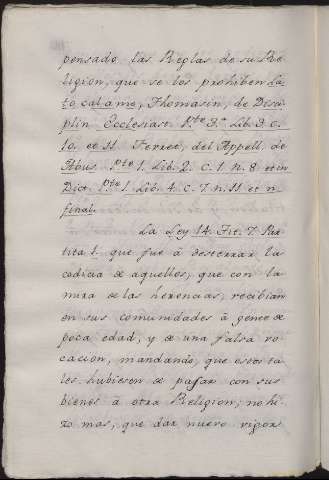 pensado las Reglas de su Re-
ligion, que se los prohiben La-
to calamo, Thomasin, de Disci-
plin Ecclesiast. P.te 3.a Lib. 3 c.
10. et 11 Ferret, del Appell. de
Abus P.te 1. Lib. 2. c. 1 n. 8 et in
Dict. P.te 1. Lib. 4. c. 7. n. 11 et n
final.
La Ley 14. Tit. 7. Par-
tita 1. que fue â desterrar la
codicia de aquellos, que con la
mira de las herencias, recibian
en sus comunidades â gente de
poca edad, y de una falsa vo-
cacion, mandando, que estos ta-
les hubiesen de pasar con sus
bienes a otra Religion; no hi-
zo mas, que dar nuevo vigor